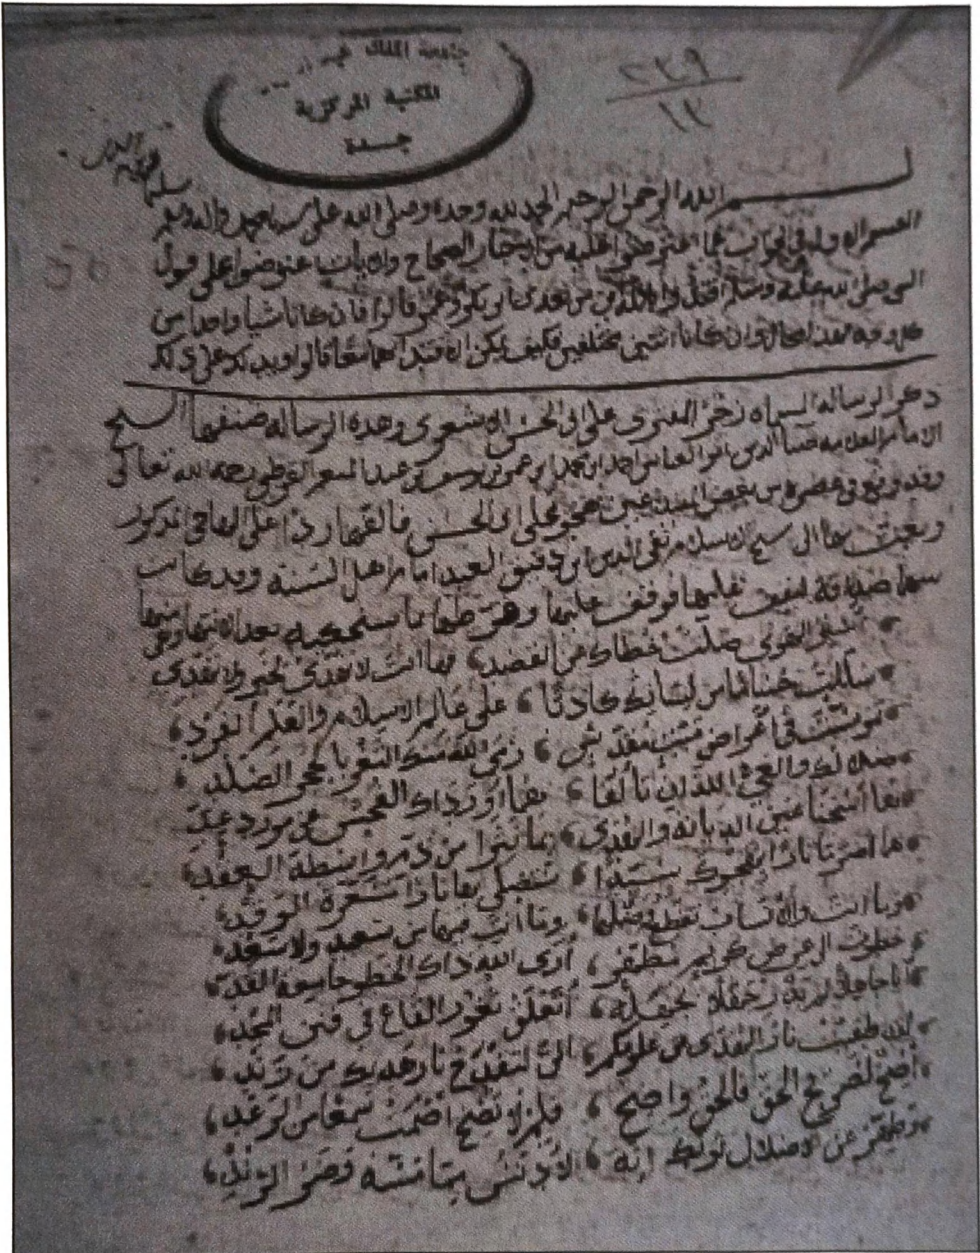 جامعة الملك عبد
المكتبة المركزية
جدة
٢٣٩
١٣
بسم الله الرحمن الرحيم الحمد لله وحده وصلى الله على سيدنا محمد واله وسلم
القسم الاول في الجواب عما اعترض اهله من اخبار الصحاح واثبات اعترضوا على قول
النبي صلى الله عليه وسلم اقتدوا بالذين من بعدي ابو بكر وعمر قالوا فان كانا شيا واحدا من
كل وجه فهذا محال وان كانا اثنين مختلفين فكيف يمكن الاقتدا بهما معا قالوا ويدلك على ذلك
ذكر الرساله المسماه زجر المفترى على ابى الحسن الاشعرى وهذه الرساله صنفها الشيخ
الامام العلامه ضيا الدين ابو العباس احمد ابن محمد ابن عمر بن يوسف بن عبد المنعم القرطبي رحمه الله تعالى
وقد وقع في عصره من بعض المبتدعين هجو على ابى الحسن فالفها ردا على الهاجي المذكور
وبعث بها الى شيخ الاسلام تقى الدين ابن دقيق العيد امام اهل السنه وقد كانت
بينهما صداقه ليقف عليها فوقف عليها وقرظها بما سنحكيه بعد الانتها منها وهي
اسير الهوى ضلت خطاك عن القصد فها انت لا تهدى لخير ولا تهدى
سللت حساما من لسانك كاذبا على عالم الاسلام والعلم الفرد
تمرست في اعراض بيت مقدس رمى الله منك الثغر بالحجر الصلد
ضلالك والغي اللذان تالفا هما اورداك الفحش من مورد عد
هما اسخنا عين الديانه والهدى بما نثرا من ذم واسطة العقد
هما اضرما نارا بهجوك سيدا ستصلى بها نارا مسعرة الوقد
وما انت والانساب تقطع وصلها وما انت فيها من سعيد ولا سعد
خطوت الى عرض كريم مطهر ارى الله ذاك الخطو جامعة القد
ايا جاهلا لم يدر جهلا بجهله اتعلق بغور القاع في قنن المجد
لقد طفيت نار الهدى من علومكم التقدح نار هديك من زند
اصخ لصريخ الحق فالحق واضح فلم لا تصخ اصمت سمعا من الرعد
وطهر عن الاضلال ثوبك انه